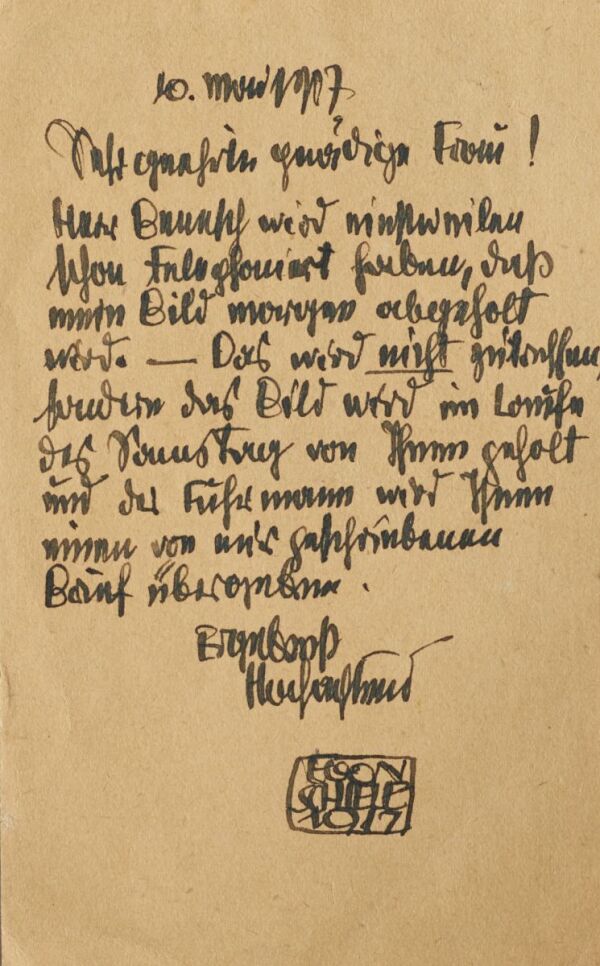 10. Mai 1917
Sehr geehrte gnädige Frau!
Herr Benesch wird einstweilen
schon telephoniert haben, daß
mein Bild morgen abgeholt
wird. — Das wird nicht zutreffen,
sondern das Bild wird im Laufe
des Samstag von Ihnen geholt
und der Fuhrmann wird Ihnen
einen von mir geschriebenen
Brief übergeben.
Hochachtend
EGON
SCHIELE
1917